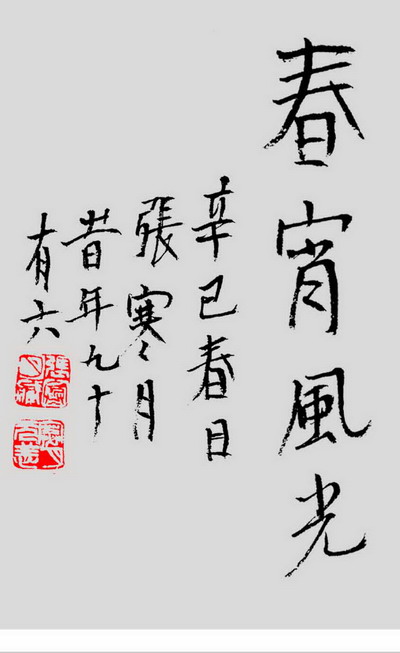 春宵風光
辛巳春日
張寒月
旹年九十
有六